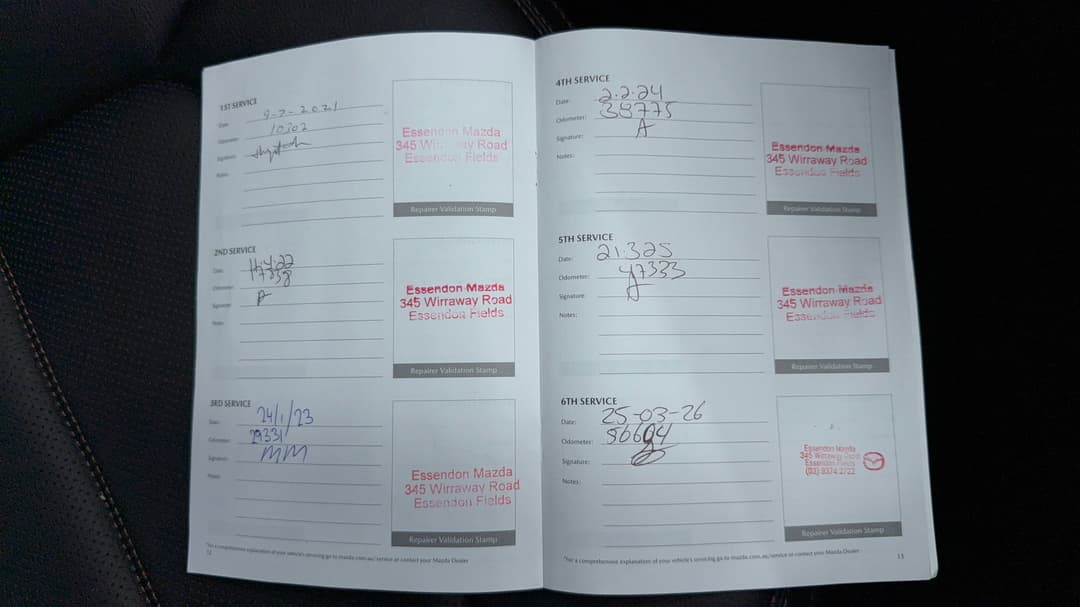 1ST SERVICE
Date: 9-2-2021
Odometer: 10302
Signature:
Notes:
Essendon Mazda
345 Wirraway Road
Essendon Fields
Repairer Validation Stamp
2ND SERVICE
Date:
Odometer: 17338
Signature:
Notes:
Essendon Mazda
345 Wirraway Road
Essendon Fields
Repairer Validation Stamp
3RD SERVICE
Date: 24/1/23
Odometer: 29331
Signature: MM
Notes:
Essendon Mazda
345 Wirraway Road
Essendon Fields
Repairer Validation Stamp
*For a comprehensive explanation of your vehicle's servicing go to mazda.com.au/service or contact your Mazda Dealer
12
4TH SERVICE
Date: 2.2.24
Odometer: 38775
Signature: A
Notes:
Essendon Mazda
345 Wirraway Road
Essendon Fields
Repairer Validation Stamp
5TH SERVICE
Date: 21.3.25
Odometer: 47333
Signature:
Notes:
Essendon Mazda
345 Wirraway Road
Essendon Fields
Repairer Validation Stamp
6TH SERVICE
Date: 25-03-26
Odometer:
Signature:
Notes:
Essendon Mazda
345 Wirraway Road
Essendon Fields
(03) 9374 2722
Repairer Validation Stamp
*For a comprehensive explanation of your vehicle's servicing go to mazda.com.au/service or contact your Mazda Dealer
13